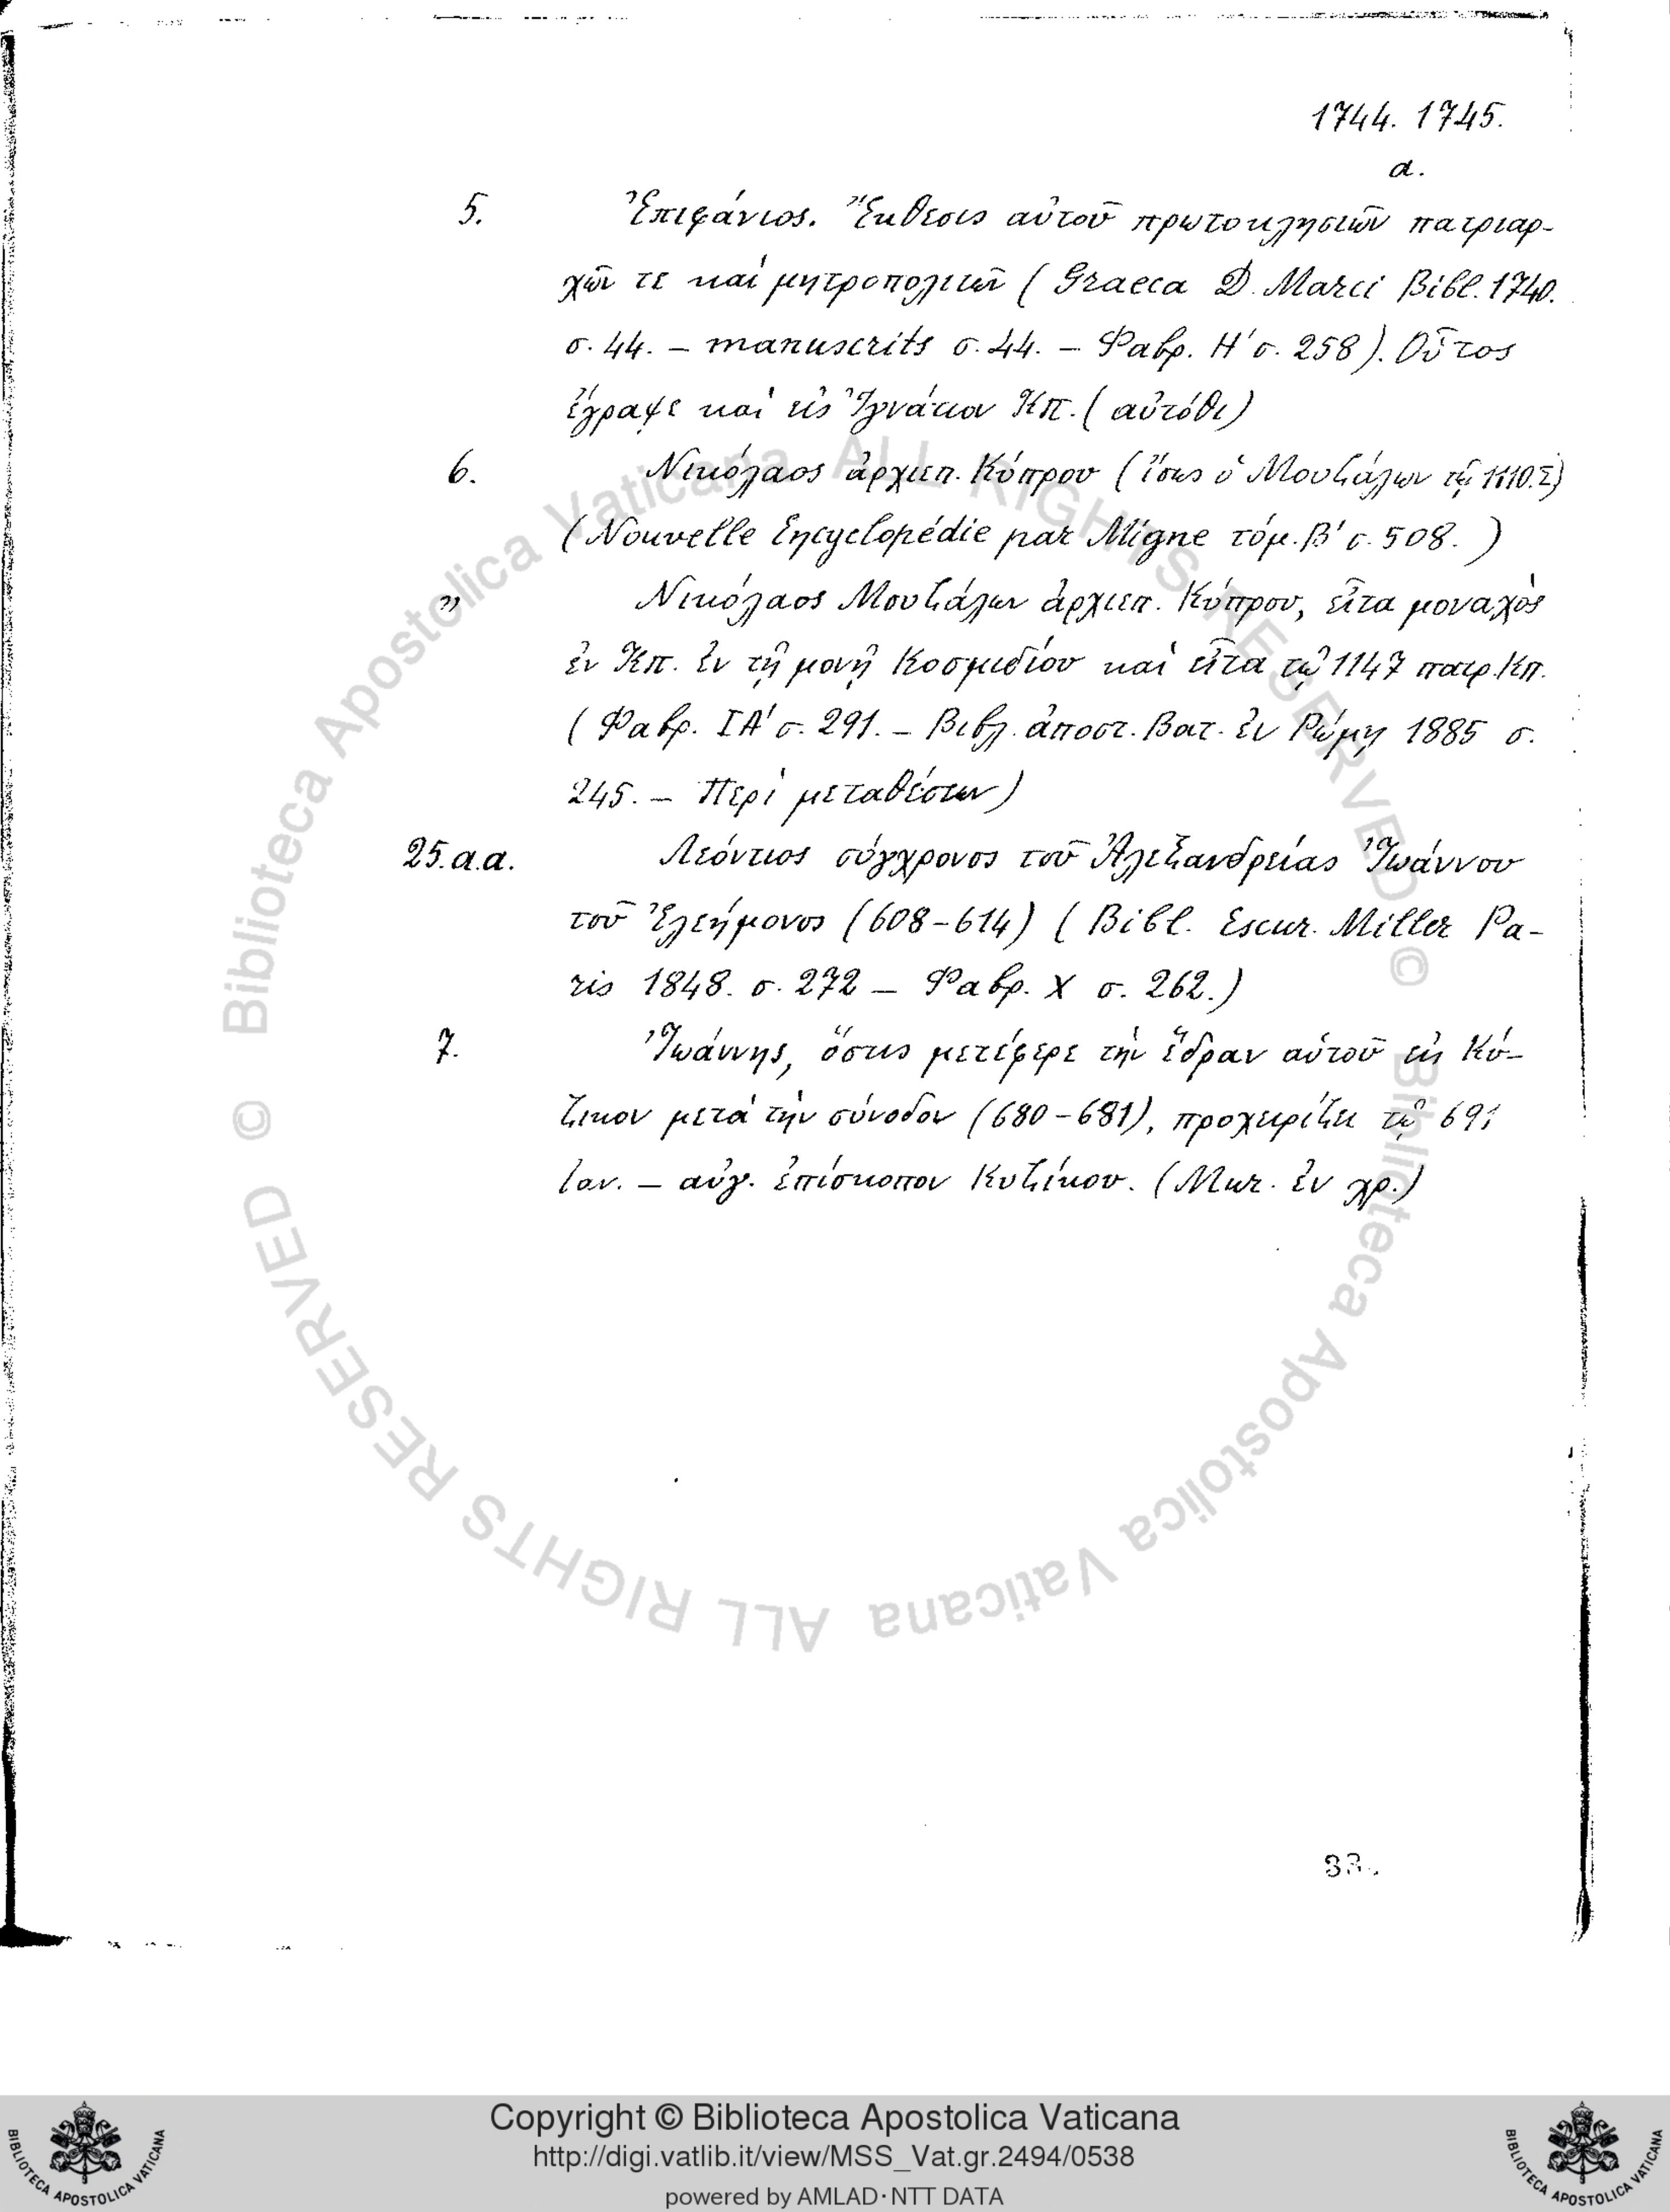 1744. 1745.
α.
5. Ἐπιφάνιος. Ἔκθεσις αὐτοῦ πρωτοκλησιῶν πατριαρ-
χῶν τε καὶ μητροπολιτῶν (Graeca D. Marci Bibl. 1740.
σ. 44. – manuscrits σ. 44. – Φαβρ. Η' σ. 258). Οὗτος
ἔγραψε καὶ εἰς Ἰγνάτιον Κπ. (αὐτόθι)
6. Νικόλαος ἀρχιεπ. Κύπρου (ἴσως ὁ Μουζάλων τῷ 1110.Σ)
(Nouvelle Encyclopédie par Migne τόμ. Β' σ. 508.)
" Νικόλαος Μουζάλων ἀρχιεπ. Κύπρου, εἶτα μοναχὸς
ἐν Κπ. ἐν τῇ μονῇ Κοσμιδίου καὶ εἶτα τῷ 1147 πατρ. Κπ.
(Φαβρ. ΙΑ' σ. 291. – Βιβλ. ἀποστ. Βατ. ἐν Ρώμῃ 1885 σ.
245. – Περὶ μεταθέσεων)
25.α.α. Λεόντιος σύγχρονος τοῦ Ἀλεξανδρείας Ἰωάννου
τοῦ Ἐλεήμονος (608-614) (Bibl. Escur. Miller Pa-
ris 1848. σ. 272 – Φαβρ. X σ. 262.)
7. Ἰωάννης, ὅστις μετέφερε τὴν ἕδραν αὐτοῦ εἰς Κύ-
ζικον μετὰ τὴν σύνοδον (680-681), προχειρίζει τῷ 691
ἰαν. – αὐγ. ἐπίσκοπον Κυζίκου. (Μικ. ἐν χρ.)
© Biblioteca Apostolica Vaticana ALL RIGHTS RESERVED © Biblioteca Apostolica Vaticana ALL RIGHTS RESERVED
Copyright © Biblioteca Apostolica Vaticana
http://digi.vatlib.it/view/MSS_Vat.gr.2494/0538
powered by AMLAD·NTT DATA
BIBLIOTECA APOSTOLICA VATICANA
BIBLIOTECA APOSTOLICA VATICANA